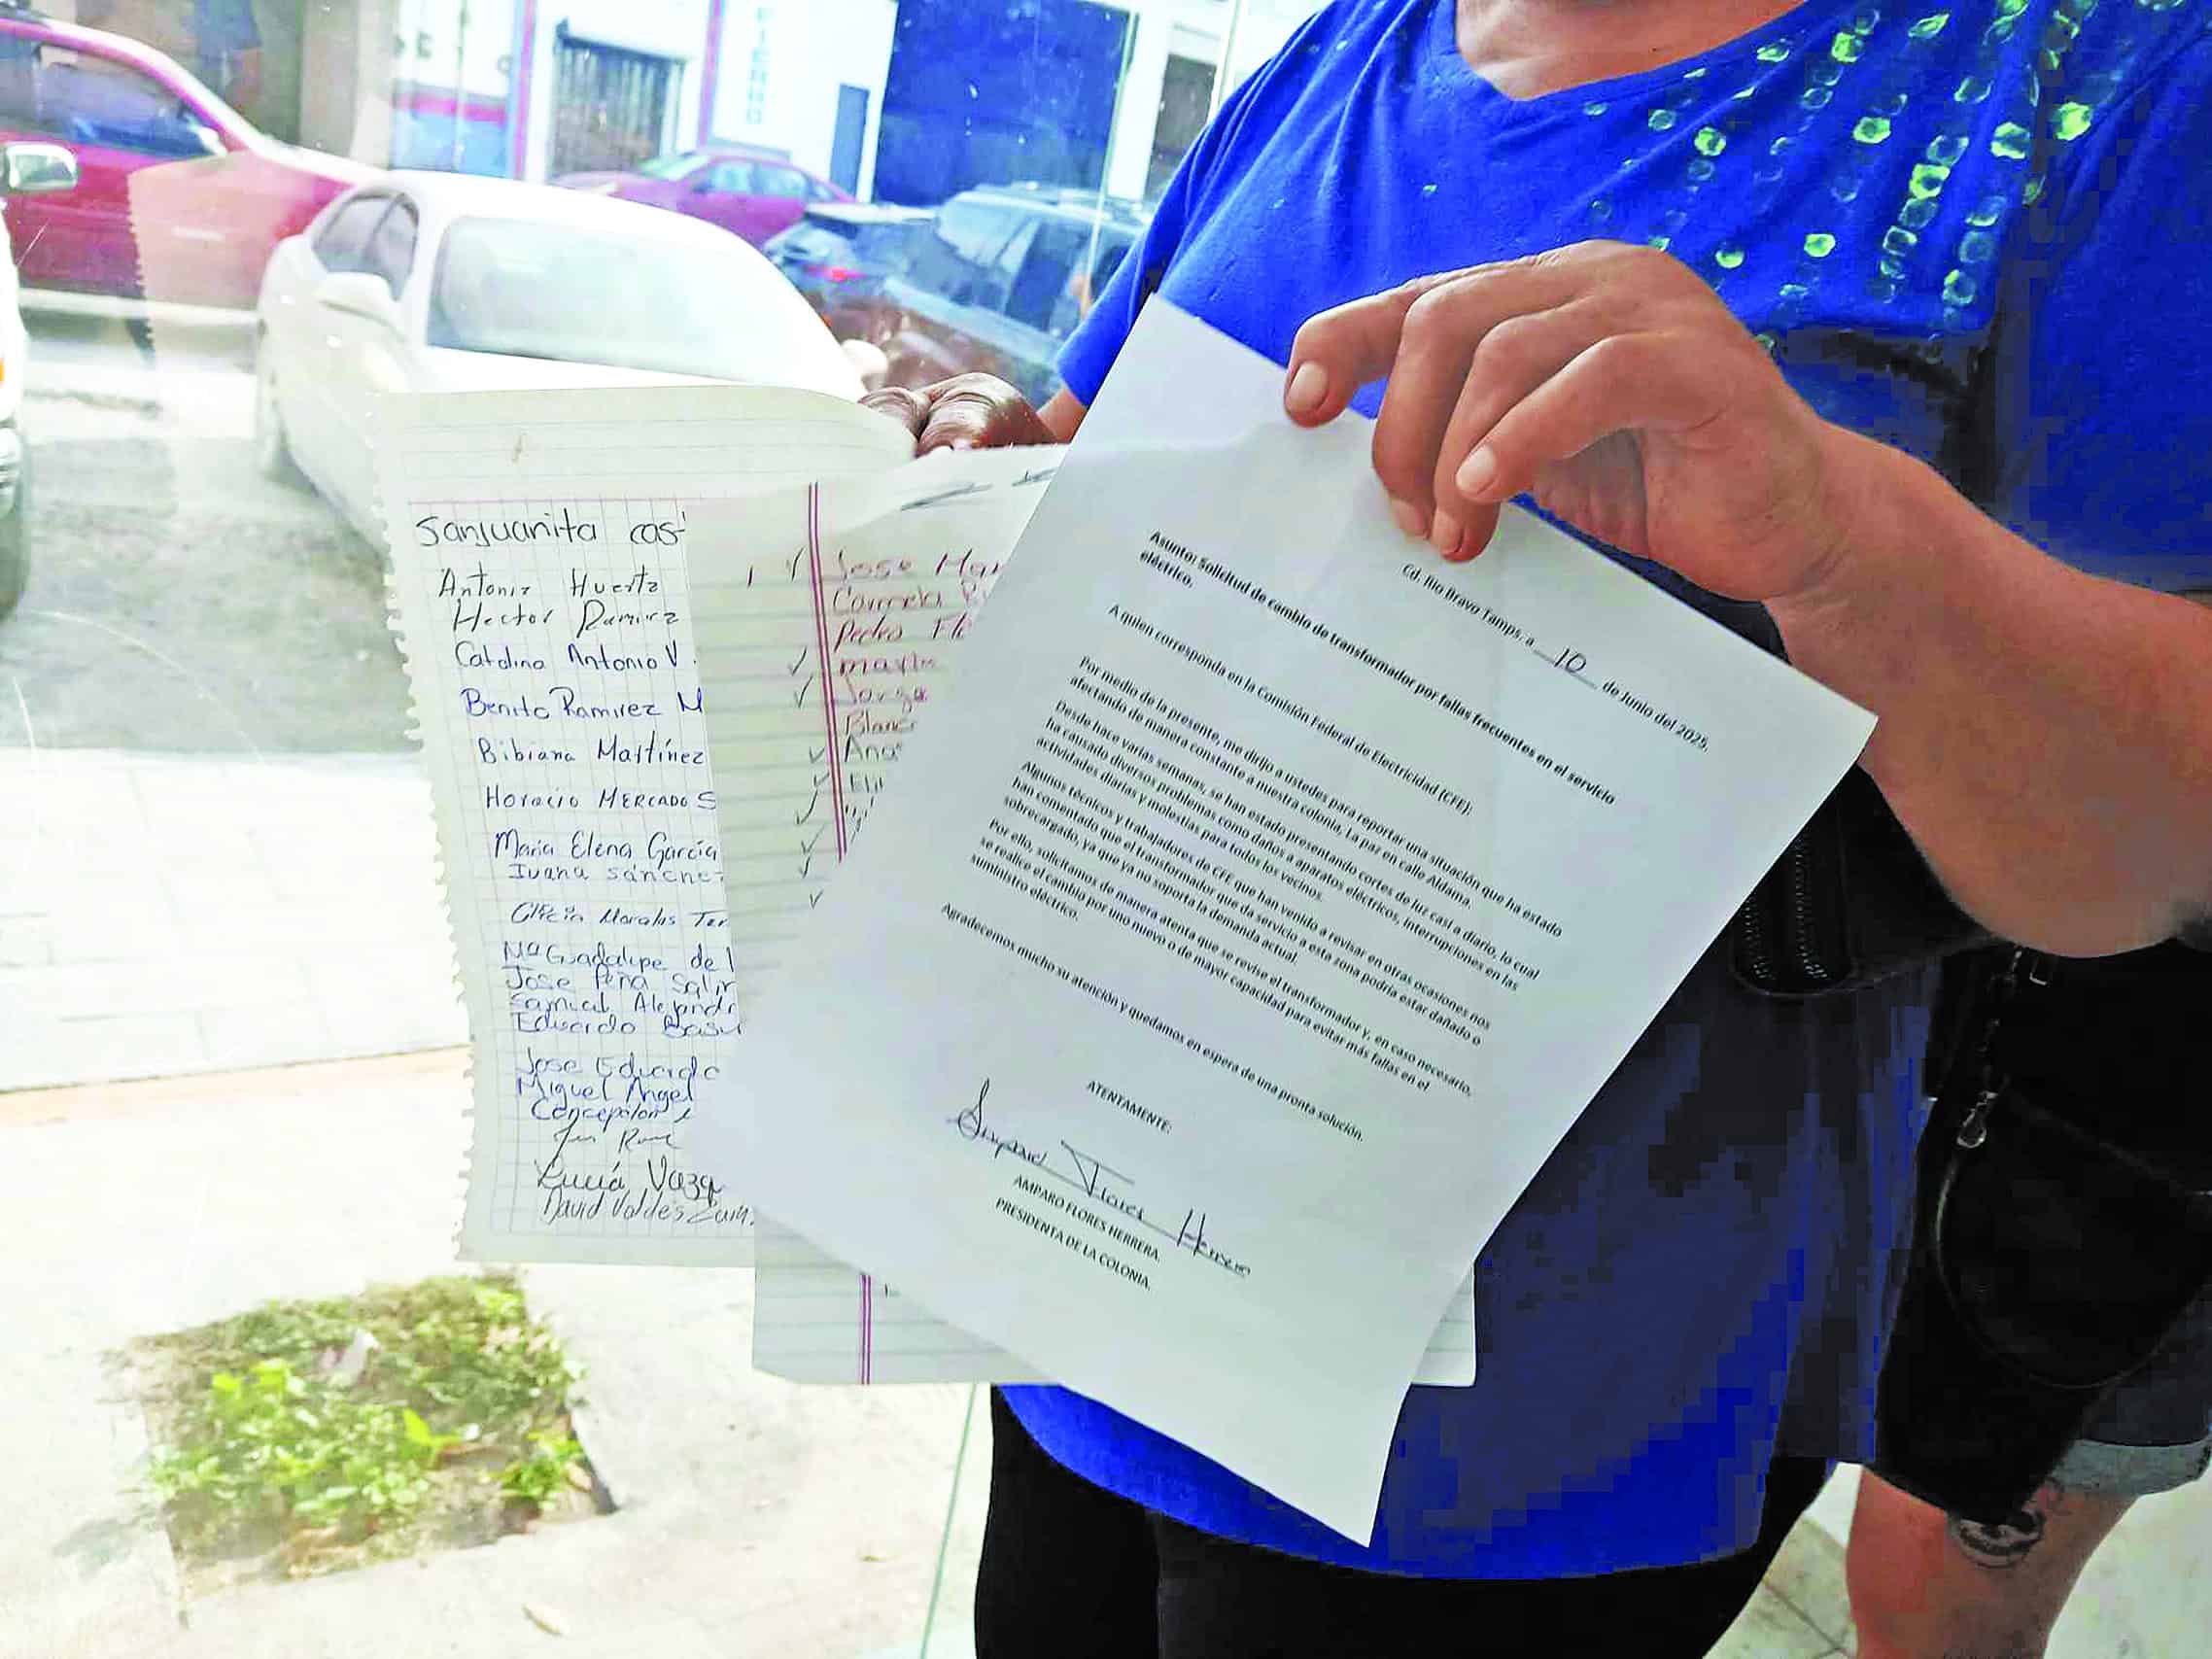 Sanjuanita cas
Antonia Huerta
Hector Ramirez
Catalina Antonio V.
Benito Ramirez M
Bibiana Martínez
Horacio MERCADO S
Maria Elena García
Ivana sánchez
Morales Ter
Ma Guadalupe de l
Jose Peña Salin
Samuel Alejandr
Eduardo Basu
Jose Eduardo
Miguel Angel
Concepción
Lucía Vazq
David Valdes Zam.
Jose Mar
Carmela Ri
Pedro Fl
Jorge
Blanc
Ana
Eli
Cd. Rio Bravo Tamps. a 10 de Junio del 2025.
Asunto: Solicitud de cambio de transformador por fallas frecuentes en el servicio
eléctrico.
A quien corresponda en la Comisión Federal de Electricidad (CFE):
Por medio de la presente, me dirijo a ustedes para reportar una situación que ha estado
afectando de manera constante a nuestra colonia, La paz en calle Aldama.
Desde hace varias semanas, se han estado presentando cortes de luz casi a diario, lo cual
ha causado diversos problemas como daños a aparatos eléctricos, interrupciones en las
actividades diarias y molestias para todos los vecinos.
Algunos técnicos y trabajadores de CFE que han venido a revisar en otras ocasiones nos
han comentado que el transformador que da servicio a esta zona podría estar dañado o
sobrecargado, ya que ya no soporta la demanda actual.
Por ello, solicitamos de manera atenta que se revise el transformador y, en caso necesario,
se realice el cambio por uno nuevo o de mayor capacidad para evitar más fallas en el
suministro eléctrico.
Agradecemos mucho su atención y quedamos en espera de una pronta solución.
ATENTAMENTE:
Amparo Flores Herrera
AMPARO FLORES HERRERA.
PRESIDENTA DE LA COLONIA.